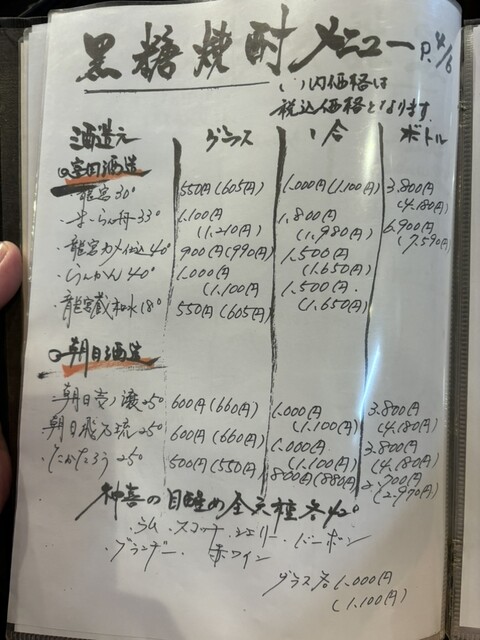 黒糖焼酎メニュー P.4/6
( )内価格は
税込価格となります
酒造元 グラス 1合 ボトル
富田酒造
・龍宮 30° 550円(605円) 1.000円(1.100円) 3.800円(4.180円)
・まーらん舟 33° 1.100円(1.210円) 1.800円(1.980円) 6.900円(7.590円)
・龍宮カメ仕込 40° 900円(990円) 1.500円(1.650円)
・らんかん 40° 1.000円(1.100円) 1.500円(1.650円)
・龍宮蔵和水 18° 550円(605円)
朝日酒造
・朝日壱ノ醸 25° 600円(660円) 1.000円(1.100円) 3.800円(4.180円)
・朝日飛乃流 25° 600円(660円) 1.000円(1.100円) 3.800円(4.180円)
・たかたろう 25° 500円(550円) 800円(880円) 2.700円(2.970円)
神喜の目醒め全六種各42°
・ラム・スコッチ・シェリー・バーボン
・ブランデー・赤ワイン
グラス各1.000円
(1.100円)